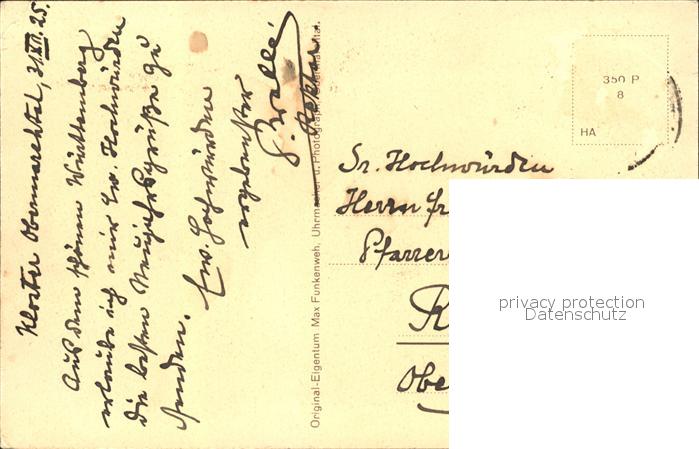 Kloster Obermarchtal, 31.XII.25.
Aus dem schönen Württemberg
erlaube ich mir Ew. Hochwürden
die besten Neujahrsgrüße zu
senden.
Ew. Hochwürden
ergebenster
Rektor.
Original-Eigentum Max Funkenweh, Uhrmacher u. Photograph, Obermarchtal.
350 P
8
HA
Sr. Hochwürden
Herrn
Pfarrer
privacy protection
Datenschutz